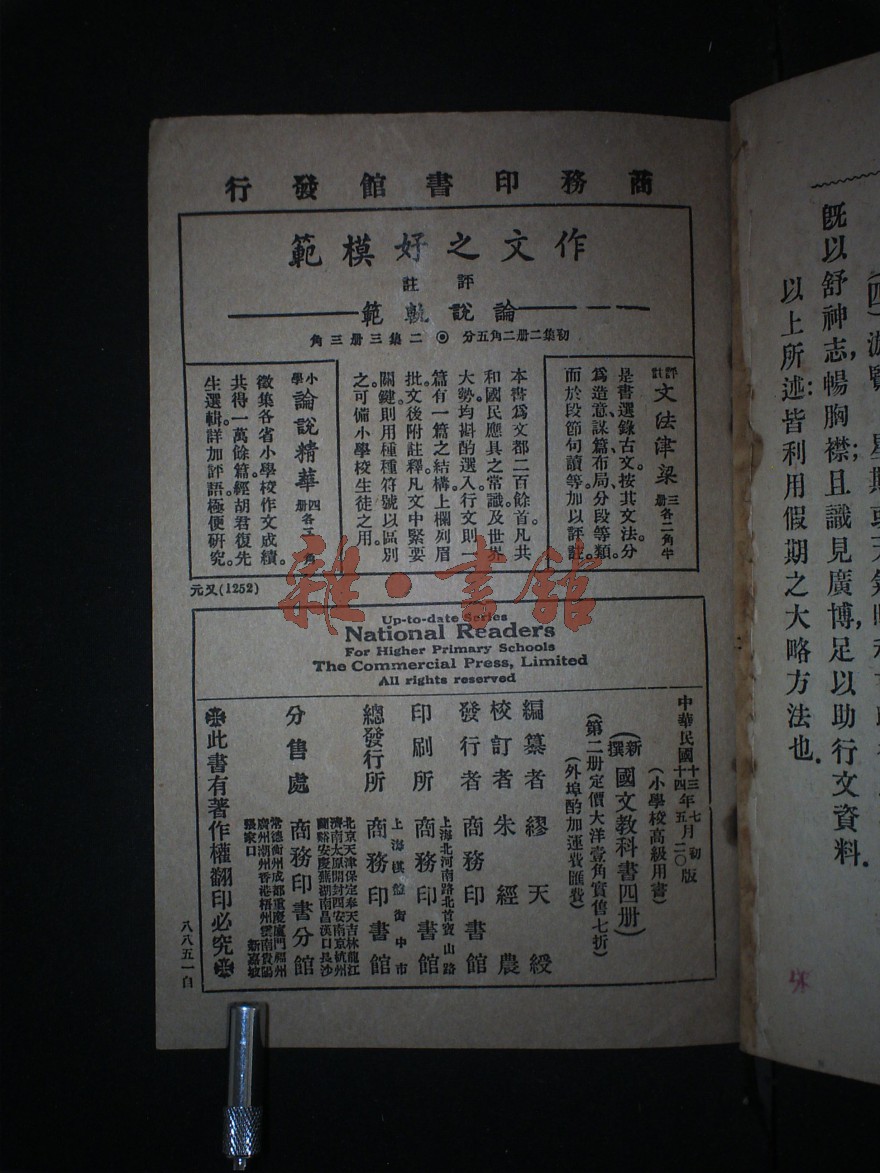 商務印書館發行
作文之好模範
評註
論說軌範
初集二册二角五分 ◉ 二集三册三角
評註文法律梁 三册各二角半
是書選錄古文。按其文法。分
爲造意、謀篇、布局、分段等類。
而於段節句讀等。加以評註。
本書爲文都二百餘首。凡共
和國民應具之常識及世界
大勢。均斟酌選入。行文則一
篇有一篇之結構。上欄列眉
批。文後附註釋。凡文中緊要
關鍵。則用種種符號以區別
之。可備小學校生徒之用。
小學論說精華 四册各二角
徵集各省小學校作文成績。
共得一萬餘篇。經胡君復先
生選輯。詳加評語。極便研究。
元又(1252)
雜·書館
Up-to-date Series
National Readers
For Higher Primary Schools
The Commercial Press, Limited
All rights reserved
中華民國十三年七月初版
十四年五月二〇版
(小學校高級用書)
(新撰國文教科書四册)
(第二册定價大洋壹角實售七折)
(外埠酌加運費匯費)
編纂者 繆天綬
校訂者 朱經農
發行者 商務印書館
上海北河南路北首寶山路
印刷所 商務印書館
上海棋盤街中市
總發行所 商務印書館
分售處 商務印書分館
北京天津保定奉天吉林龍江
濟南太原開封西安南京杭州
蘭谿安慶蕪湖南昌漢口長沙
常德衡州成都重慶廈門福州
廣州潮州香港梧州雲南貴陽
張家口 新嘉坡
此書有著作權翻印必究
八八五一自
旣以舒神志,暢胸襟;且識見廣博,足以助行文資料.
以上所述:皆利用假期之大略方法也.